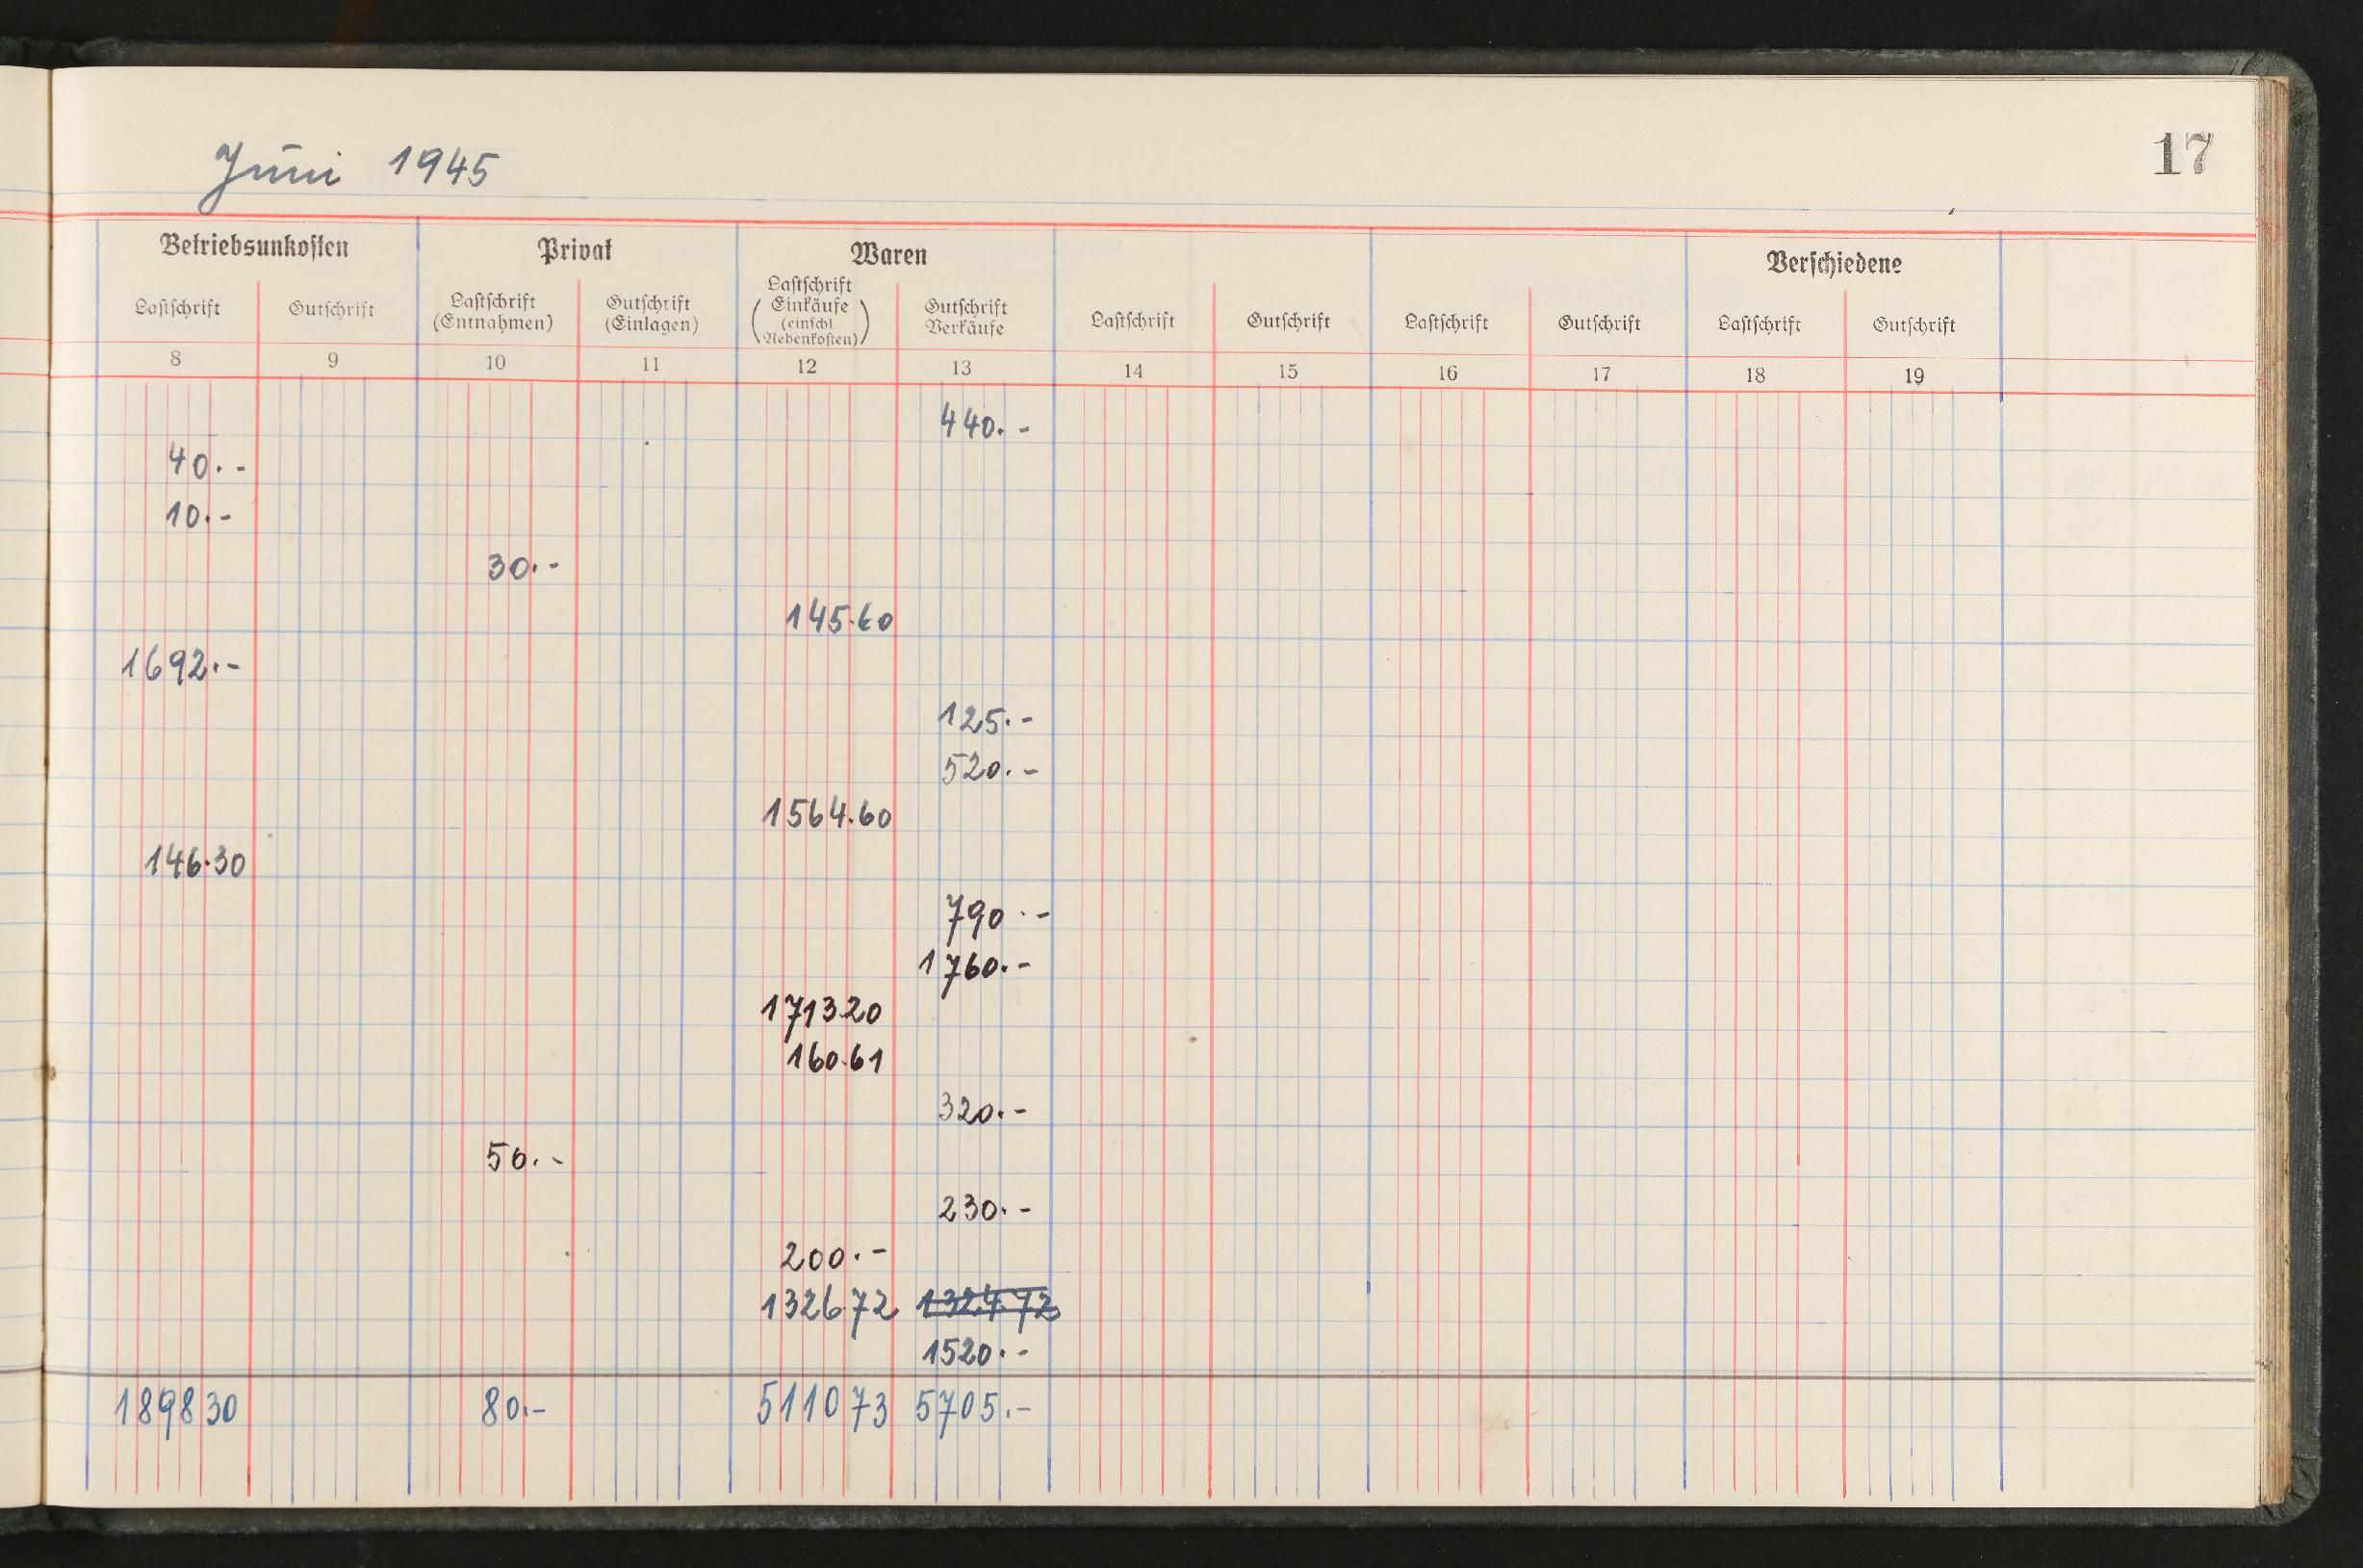 Juni 1945 17
Betriebsunkosten Privat Waren Verschiedene
Lastschrift Gutschrift Lastschrift (Entnahmen) Gutschrift (Einlagen) Lastschrift (Einkäufe (einschl. Nebenkosten)) Gutschrift Verkäufe Lastschrift Gutschrift Lastschrift Gutschrift Lastschrift Gutschrift
8 9 10 11 12 13 14 15 16 17 18 19
440.-
40.-
10.-
30.-
145.60
1692.-
125.-
520.-
1564.60
146.30
790.-
1760.-
1713.20
160.61
320.-
50.-
230.-
200.-
1326.72 1324.72
1520.-
1898 30 80.- 5110 73 5705.-